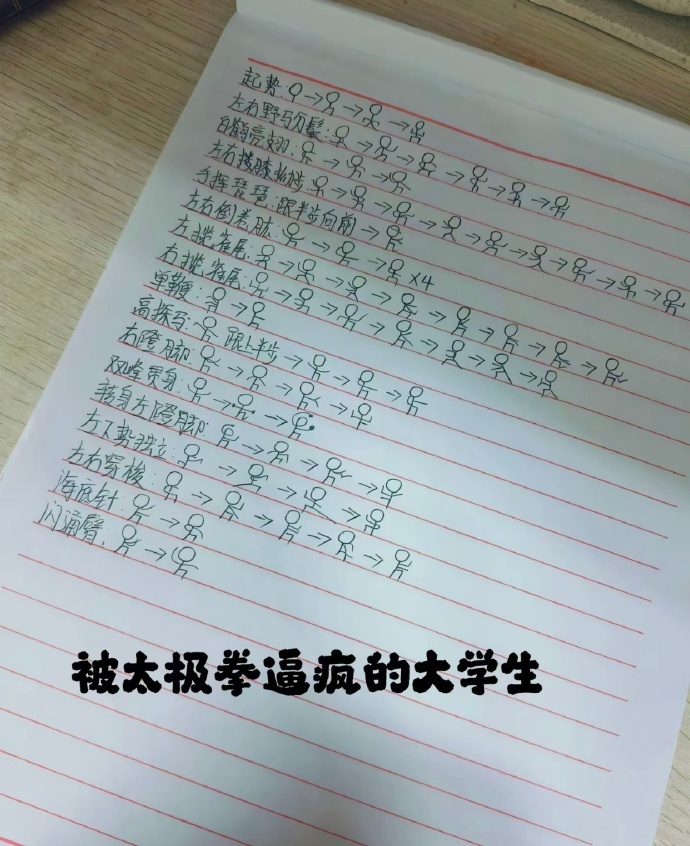 起势:
左右野马分鬃:
白鹤亮翅:
左右搂膝拗步:
手挥琵琶:跟半步向前→
左右倒卷肱: ×4
左揽雀尾:
右揽雀尾:
单鞭:
高探马: 跟上半步→
右蹬脚:
双峰贯身:
转身左蹬脚:
左下势独立:
左右穿梭:
海底针:
闪通臂:
被太极拳逼疯的大学生